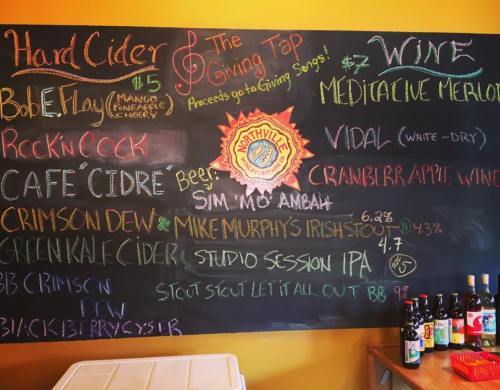 Hard Cider
$5
BobE.Flay (MANGO
PINEAPPLE
CHERRY)
ROCK'N COCK
CAFE "CIDRE"
CRIMSON DEW &
GREEN KALE CIDER
BB CRIMSON
DEW
BLACKBERRY CYSER
The
Giving Tap
Proceeds go to Giving Songs!
NORTHVILLE
Beer:
SIM 'MO' AMBAH
6.2%
MIKE MURPHY'S IRISH STOUT 4.3%
4.7
STUDIO SESSION IPA
$5
STOUT STOUT LET IT ALL OUT BB 9%
$7 WINE
MEDITATIVE MERLOT
VIDAL (WHITE-DRY)
CRANBERR APPLE WINE